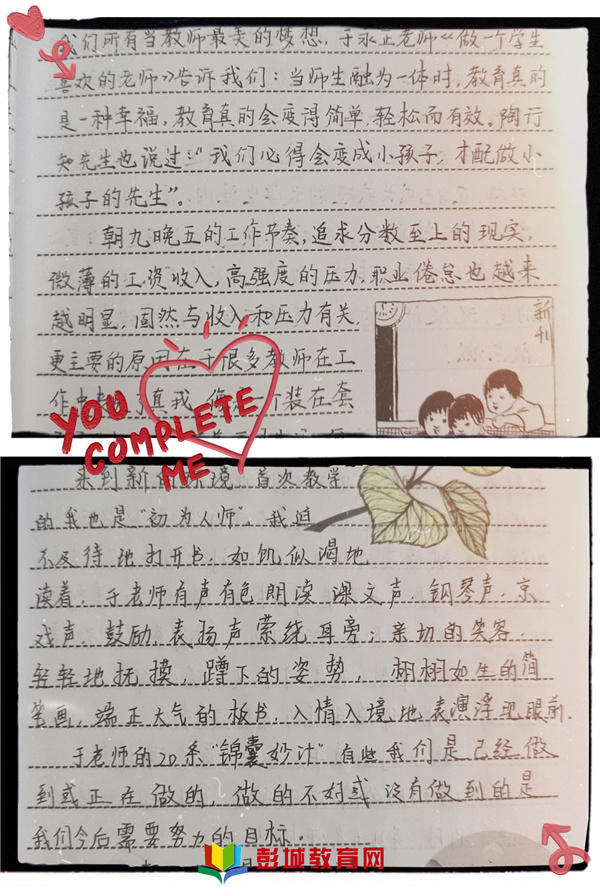 我们所有当教师最美的梦想，于永正老师《做一个学生
喜欢的老师》告诉我们：当师生融为一体时，教育真的
是一种幸福，教育真的会变得简单，轻松而有效。陶行
知先生也说过：“我们必得会变成小孩子，才配做小
孩子的先生”。
朝九晚五的工作节奏，追求分数至上的现实，
微薄的工资收入，高强度的压力，职业倦怠也越来
越明显，固然与收入和压力有关，
更主要的原因在于很多教师在工
作中 了真我，像 一个装在套
新刊
YOU
COMPLETE
ME
来到新的环境，首次教学
的我也是“初为人师”，我迫
不及待地打开书，如饥似渴地
读着，于老师有声有色朗读课文声，钢琴声，京
戏声，鼓励、表扬声萦绕耳旁；亲切的笑容，
轻轻地抚摸，蹲下的姿势，栩栩如生的简
笔画，端正大气的板书，入情入境地表演浮现眼前.
于老师的20条“锦囊妙计”有些我们是已经做
到或正在做的，做的不好或没有做到的是
我们今后需要努力的目标.
彭城教育网